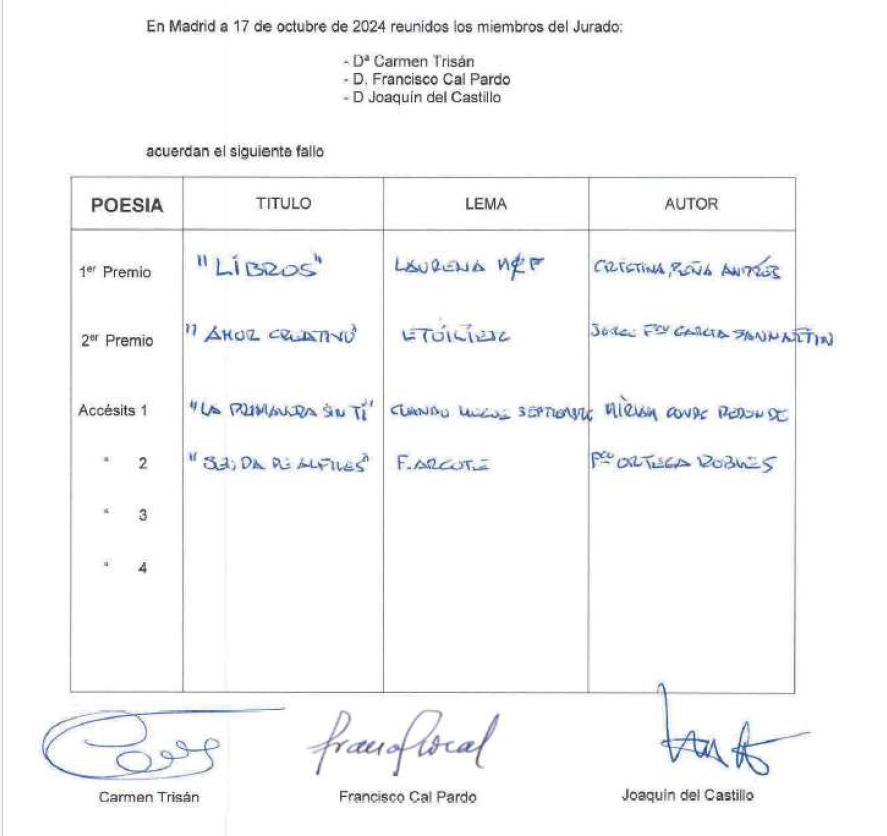 En Madrid a 17 de octubre de 2024 reunidos los miembros del Jurado:
- Dª Carmen Trisán
- D. Francisco Cal Pardo
- D Joaquín del Castillo
acuerdan el siguiente fallo
POESIA TITULO LEMA AUTOR
1er Premio "LIBROS" LAURENA CRISTINA PEÑA ANDRÉS
2er Premio "AMOR CREATIVO" JORGE Fco GARCIA SANMARTIN
Accésits 1 "LA PRIMAVERA SIN TI" CUANDO LLEGUE SEPTIEMBRE MIRIAM CONDE REDONDO
" 2 DE ALFILES" F. ARCOTE Fco ORTEGA ROBLES
" 3
" 4
Carmen Trisán Francisco Cal Pardo Joaquin del Castillo